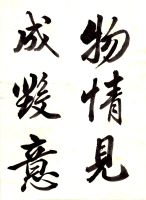 物情見
成毀意